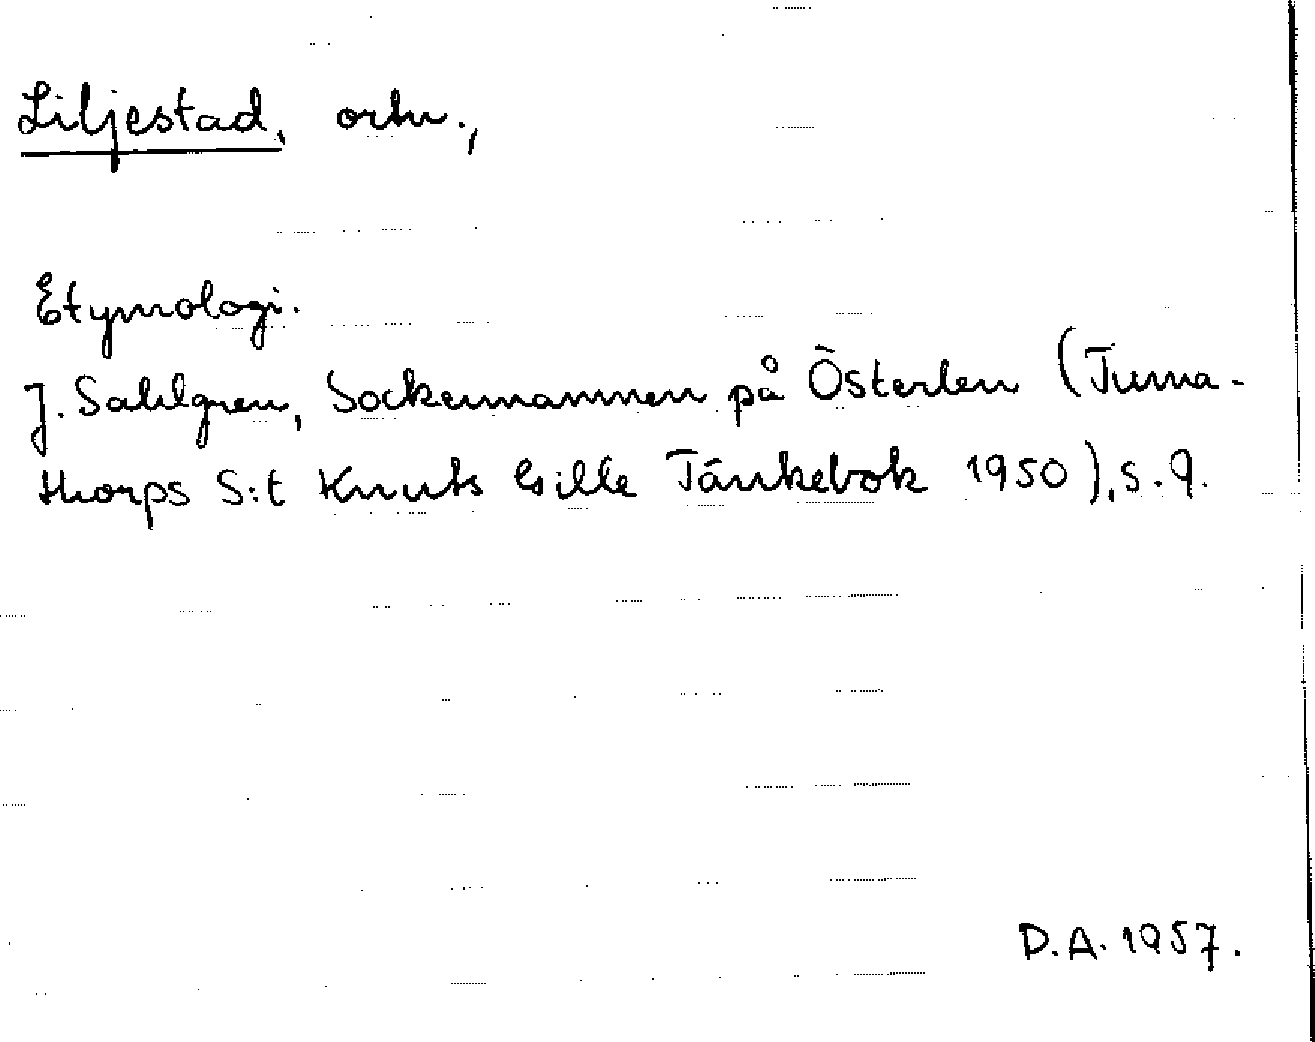 Liljestad, ortn.,
Etymologi.
J. Sahlgren, Sockennamnen på Österlen (Tuma-
thorps S:t Knuts Gille Tänkebok 1950), s. 9.
D.A. 1957.